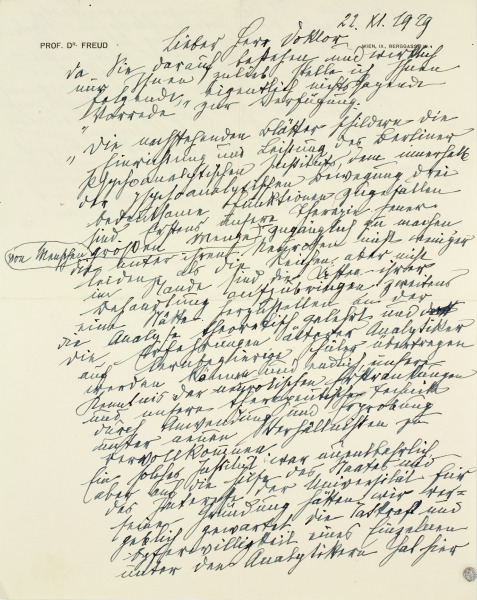 22. XI. 1929
PROF. DR. FREUD
WIEN, IX., BERGGASSE 19
Lieber Herr Doktor
Da Sie darauf bestehen und wirklich
nur Ihnen zuliebe stelle ich Ihnen
folgende, eigentlich nichtssagende
Vorrede zur Verfügung.
„Die nachstehenden Blätter schildern die
Einrichtung und Leistung des Berliner
Psychoanalytischen Instituts, dem innerhalb
der psychoanalytischen Bewegung drei
bedeutsame Funktionen zugefallen
sind: Erstens unsere Therapie jener
großen Menge von Menschen zugänglich zu machen
die unter ihren Neurosen nicht weniger
leiden als die Reichen, aber nicht
im Stande sind die Kosten ihrer
Behandlung aufzubringen, zweitens
eine Stätte herzustellen an der
die Analyse theoretisch gelehrt und
die Erfahrungen älterer Analytiker
auf lernbegierige Schüler übertragen
werden können und endlich unsere
Kenntnis der neurotischen Erkrankungen
und unsere therapeutische Technik
durch Anwendung und Erprobung
unter neuen Verhältnissen zu
vervollkommnen.
Ein solches Institut war unentbehrlich
aber auf die Hilfe des Staates und
das Interesse der Universität für
seine Gründung hätten wir ver-
geblich gewartet. Die Tatkraft und
Opferwilligkeit eines Einzelnen
unter den Analytikern hat hier